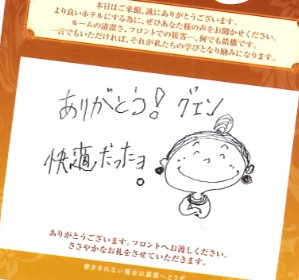 本日はご来館、誠にありがとうございます。
より良いホテルにする為に、ぜひあなた様の声をお聞かせください。
ルームの清潔さ、フロントでの接客…、何でも結構です。
一言でもいただければ、それが私たちの学びとなり励みになります。
ありがとう! グエン
快適だったヨ。
ありがとうございます。フロントへお渡しください。
ささやかなお礼をさせていただきます。
書ききれない場合は裏面へどうぞ